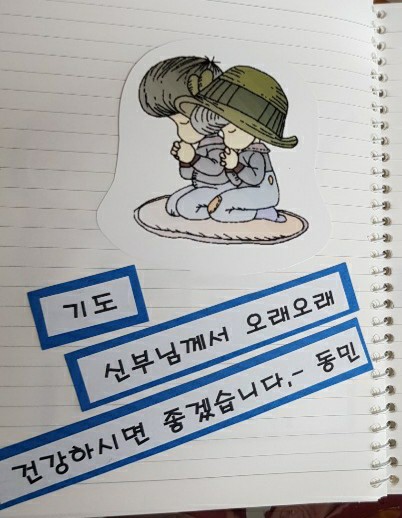 기도
신부님께서 오래오래
건강하시면 좋겠습니다.- 동민